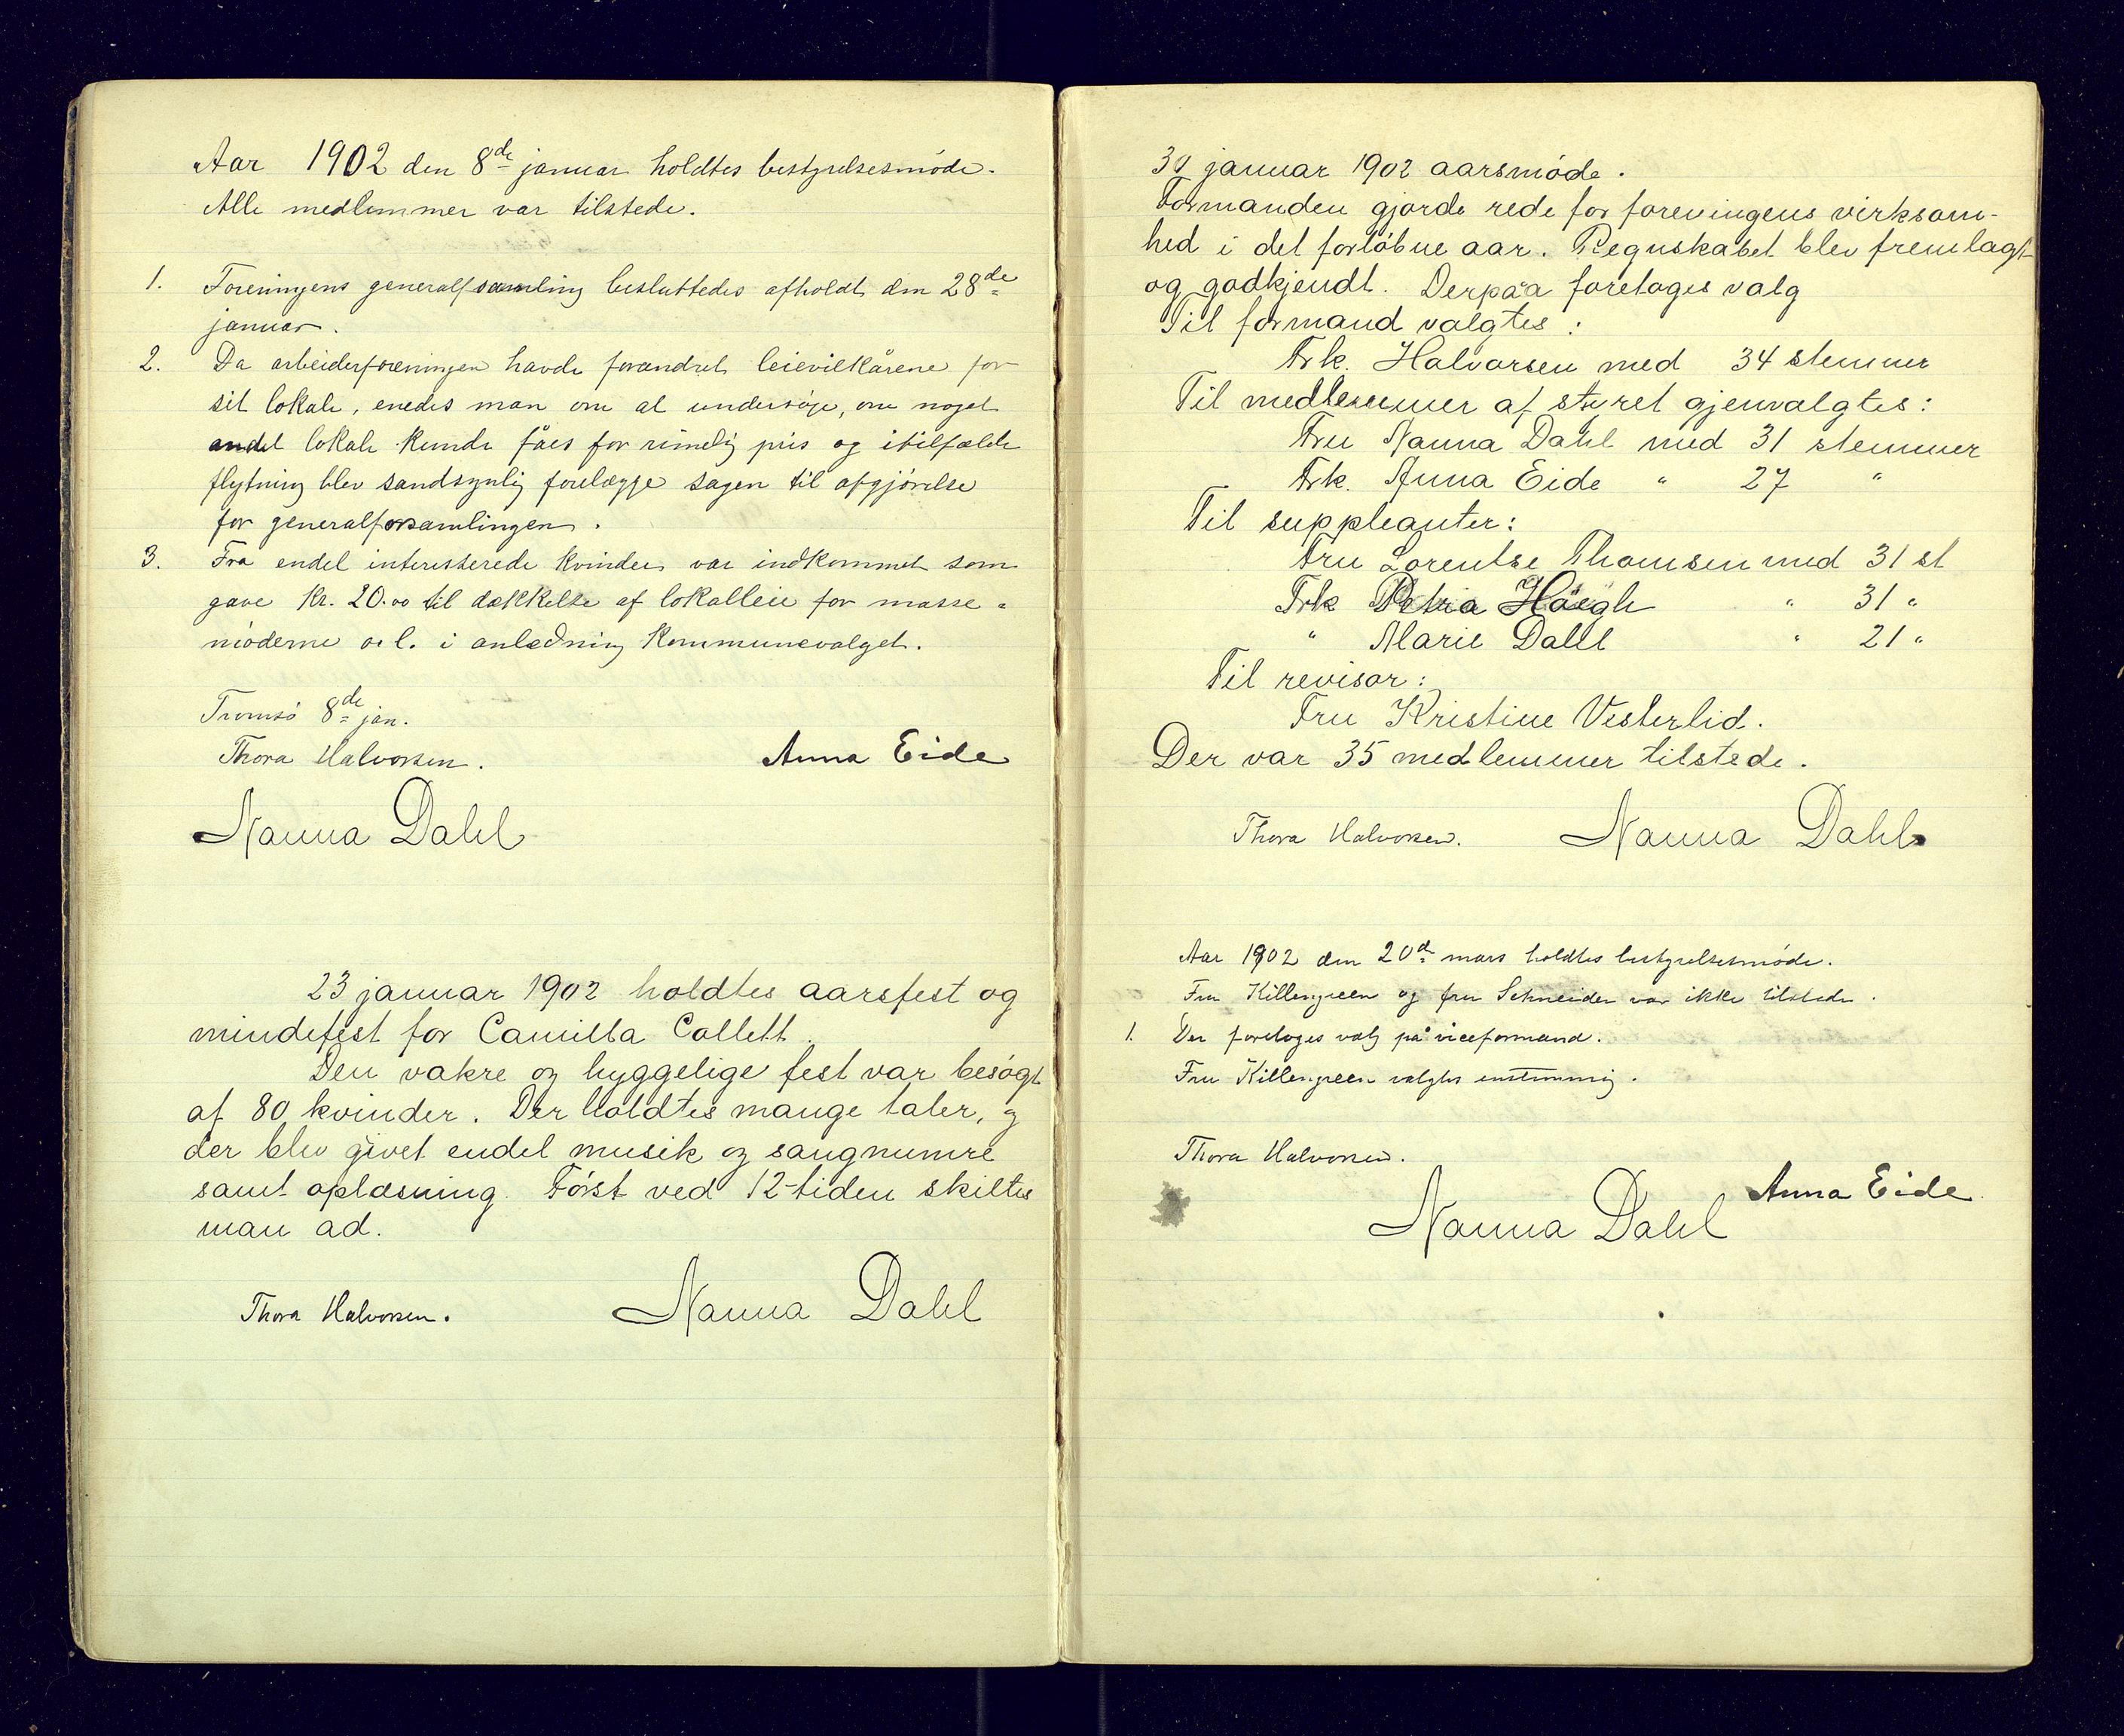 Aar 1902 den 8de januar holdtes bestyrelsesmöde.
Alle medlemmer var tilstede.
1. Foreningens generalfsamling besluttedes afholdt den 28de
januar.
2. Da arbeiderforeningen havde forandret leievilkårene for
sit lokale, enedes man om at undersöge, om noget
andet lokale kunde fåes for rimelig pris og itilfælde
flytning blev sandsynlig forelægge sagen til afgjörelse
for generalforsamlingen.
3. Fra endel interesserede kvinder var indkommet som
gave Kr. 20.00 til dækkelse af lokalleie for masse=
möderne o. l. i anledning kommunevalget.
Tromsö 8de jan.
Thora Halvorsen. Anna Eide
Nanna Dahl
23 januar 1902 holdtes aarsfest og
mindefest for Camilla Collett.
Den vakre og hyggelige fest var besögt
af 80 kvinder. Der holdtes mange taler, og
der blev givet endel musik og sangnumre
samt oplæsning. Först ved 12-tiden skiltes
man ad.
Thora Halvorsen. Nanna Dahl
30 januar 1902 aarsmöde.
Formanden gjorde rede for foreningens virksom-
hed i det forlöbne aar. Regnskabet blev fremlagt
og godkjendt. Derpaa foretoges valg
Til formand valgtes:
Frk. Halvorsen med 34 stemmer
Til medlemmer af styret gjenvalgtes:
Fru Nanna Dahl med 31 stemmer
Frk. Anna Eide " 27 "
Til suppleanter:
Fru Lorentse Thomsen med 31 st
Frk Petra Höegh " 31 "
" Marie Dahl " 21 "
Til revisor:
Fru Kristine Vesterlid.
Der var 35 medlemmer tilstede.
Thora Halvorsen. Nanna Dahl
Aar 1902 den 20de mars holdtes bestyrelsesmöde.
Fru Killengreen og fru Schneider var ikke tilstede.
1. Der foretoges valg på viceformand.
Fru Killengreen valgtes enstemmig.
Thora Halvorsen.
Anna Eide
Nanna Dahl